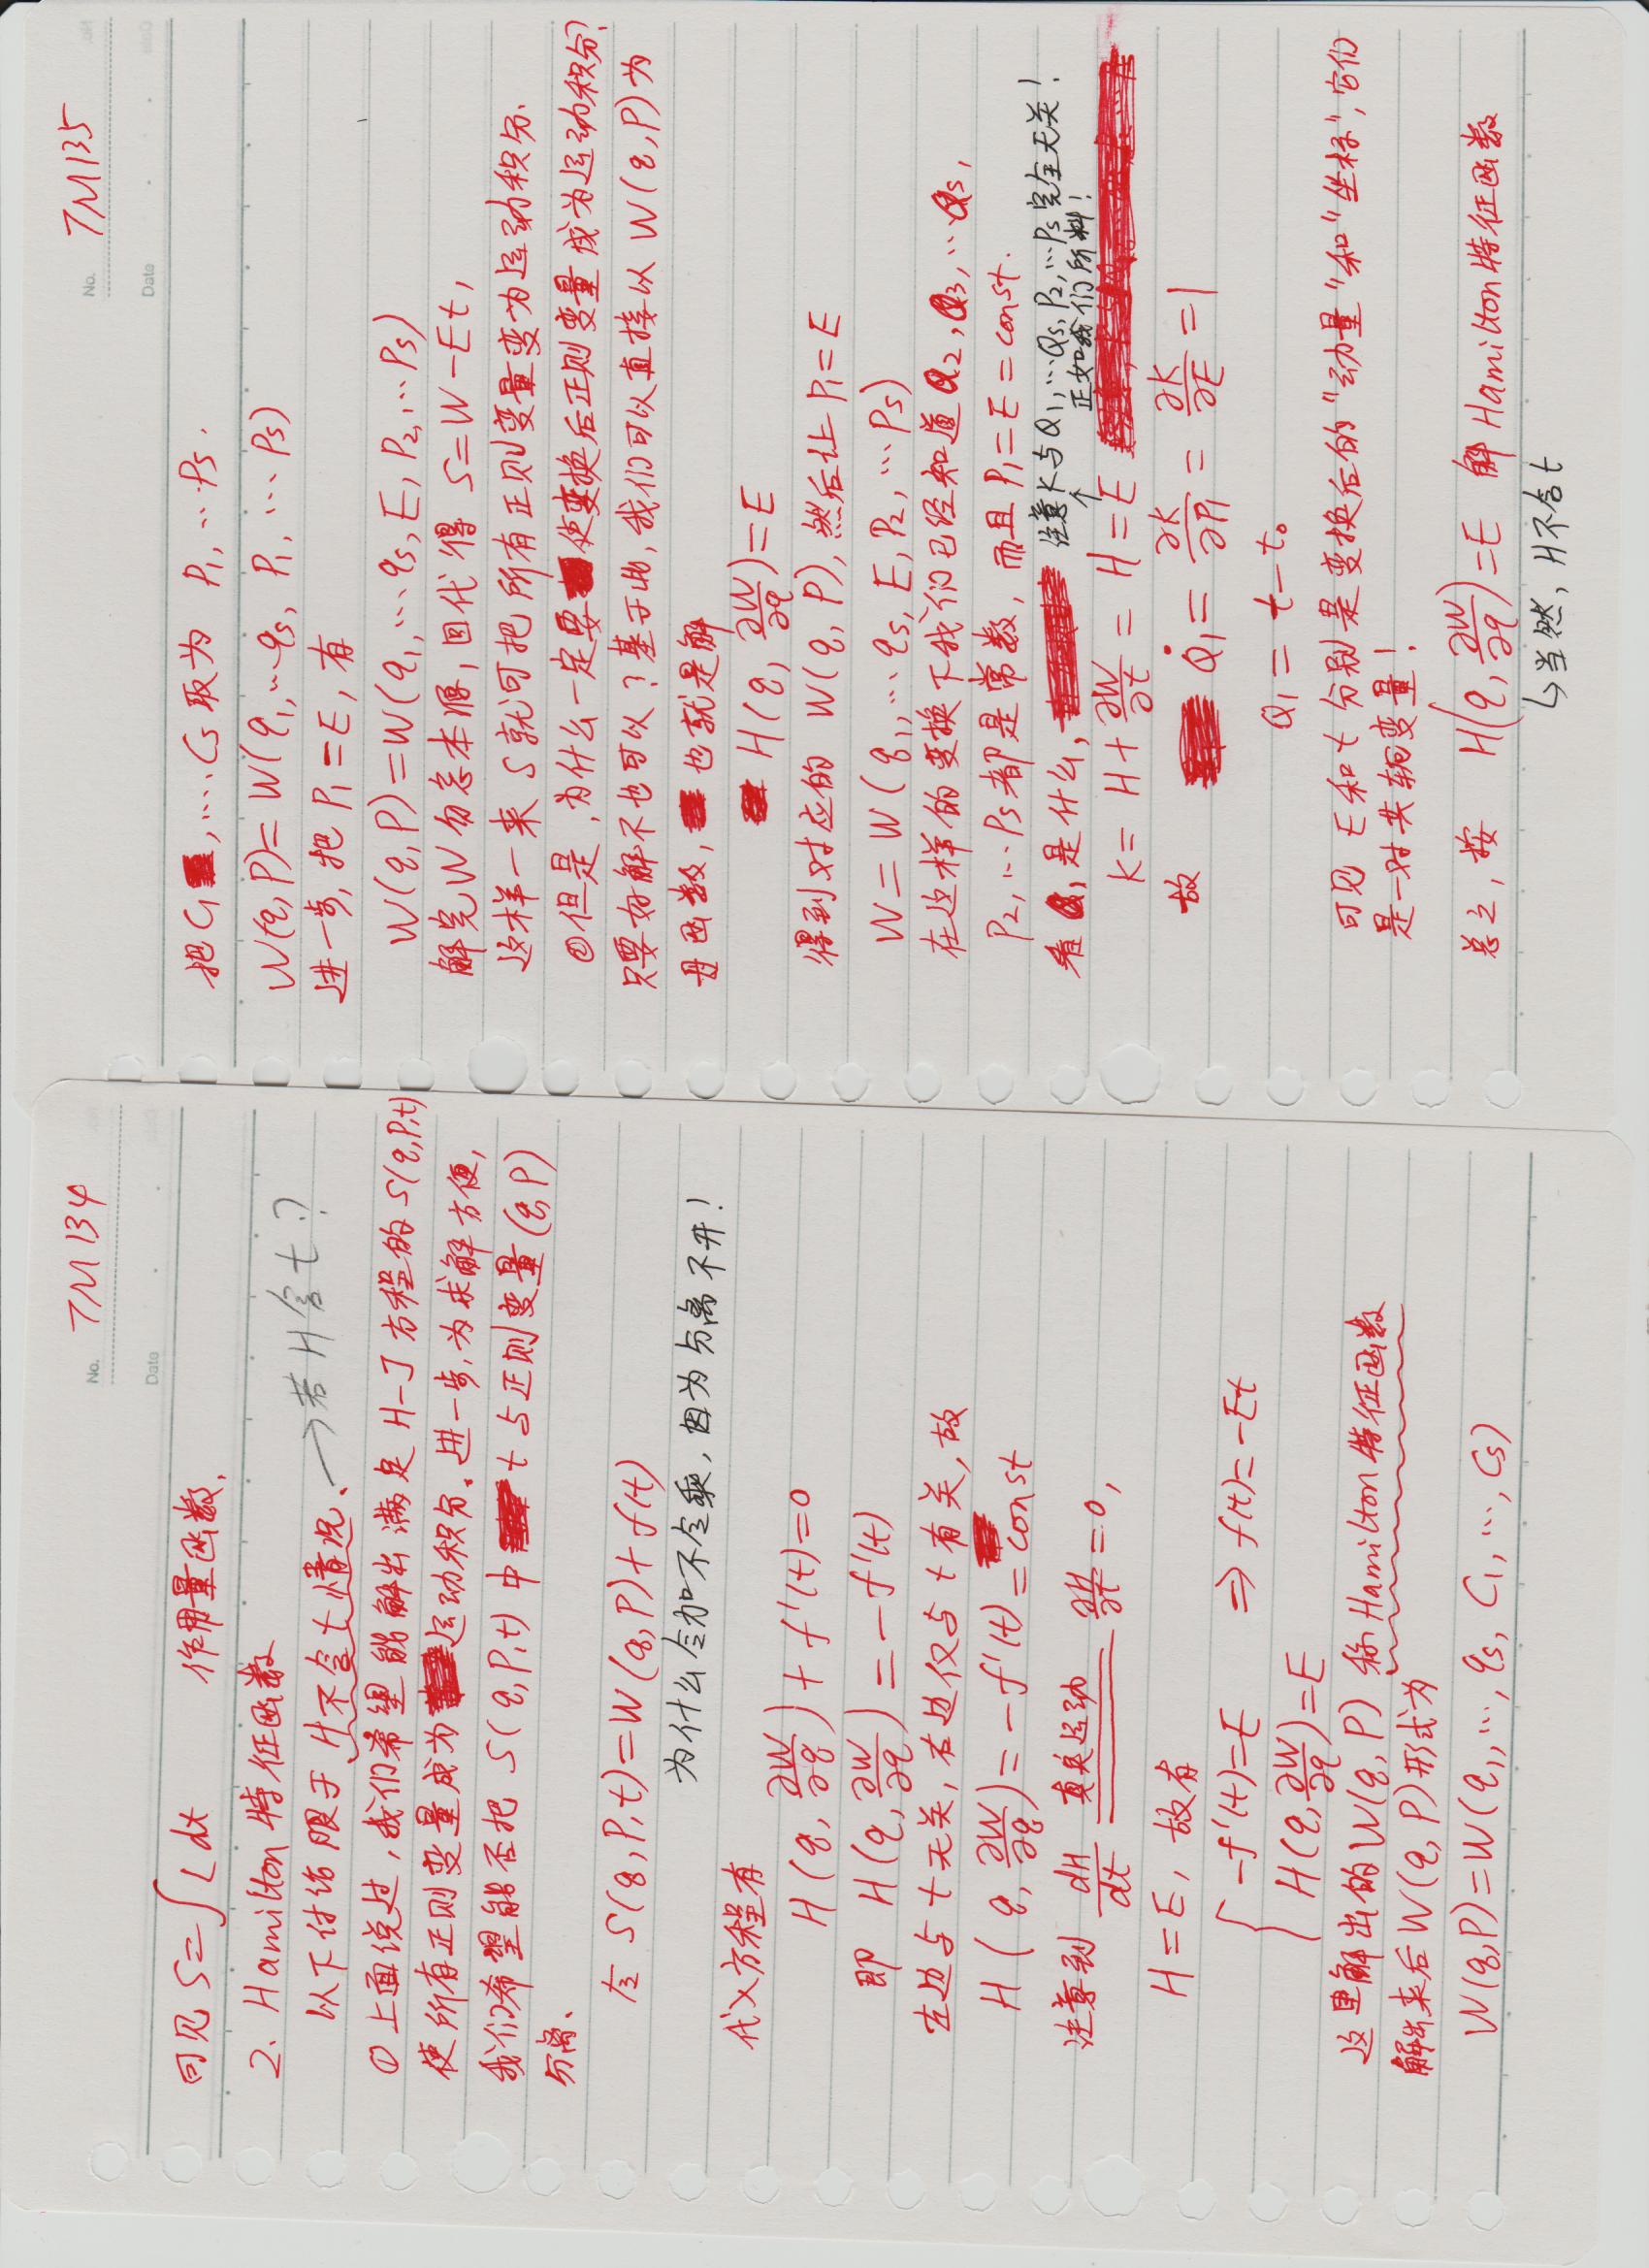 No. TM134
Date
可见 S=∫L dt 作用量函数.
2. Hamilton 特征函数
以下讨论限于 H不含t情况. →若H含t?
① 上面说过, 我们希望能解出满足 H-J 方程的 S(q,P,t)
使所有正则变量成为运动积分. 进一步, 为求解方便,
我们希望能否把 S(q,P,t) 中 t 与正则变量(q,P)
分离.
令 S(q,P,t)=W(q,P)+f(t)
为什么令加不令乘, 因为分离不开!
代入方程有
H(q, ∂W/∂q)+f'(t)=0
即 H(q, ∂W/∂q)=-f'(t)
左边与t无关, 右边仅与t有关, 故
H(q, ∂W/∂q)=-f'(t)=const
注意到 dH/dt 真实运动 ∂H/∂t=0,
H=E, 故有
{ -f'(t)=E ⇒ f(t)=-Et
H(q, ∂W/∂q)=E
这里解出的 W(q,P) 称 Hamilton 特征函数
解出来后 W(q,P) 形式为
W(q,P)=W(q₁,…,qₛ, C₁,…,Cₛ)
No. TM135
Date
把 C₁,…,Cₛ 取为 P₁,…Pₛ.
W(q,P)=W(q₁,…qₛ, P₁,…Pₛ)
进一步, 把 P₁=E, 有
W(q,P)=W(q₁,…qₛ,E,P₂,…Pₛ)
解完W勿忘本源, 回代得 S=W-Et,
这样一来 S就可把所有正则变量变为运动积分.
②但是, 为什么一定要使变换后正则变量成为运动积分?
只要好解不也可以? 基于此, 我们可以直接以 W(q,P)为
母函数, 也就是解
H(q, ∂W/∂q)=E
得到对应的 W(q,P), 然后让 P₁=E
W=W(q₁,…qₛ,E,P₂,…Pₛ)
在这样的变换下我们已经知道 Q₂,Q₃,…Qₛ,
P₂,…Pₛ都是常数, 而且 P₁=E=const.
看 Q₁ 是什么, 注意K与Q₁,…Qₛ,P₂,…Pₛ完全无关!
↑ 正如我们所料!
K=H+∂W/∂t=H=E
故 Q̇₁=∂K/∂P₁=∂K/∂E=1
Q₁=t-t₀
可见 E和t分别是变换后的"动量"和"坐标", 它们
是一对共轭变量!
总之, 按 H(q, ∂W/∂q)=E 解 Hamilton 特征函数
↳当然, H不含t